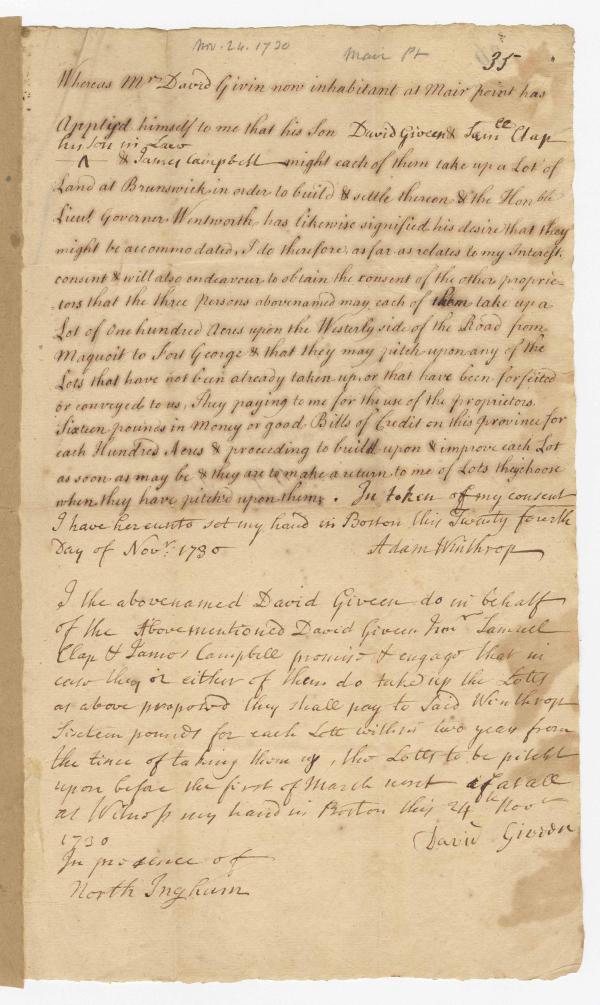 Nov. 24. 1730
Mair Pt
35
Whereas Mr. David Givin now inhabitant at Mair point has
Applyd himself to me that his Son David Giveen & Samll Clap
his Son in Law
^ & James Campbell might each of them take up a Lot of
Land at Brunswick in order to build & settle thereon & the Honble
Lieut. Governer Wentworth has likewise signified his desire that they
might be accommodated, I do therefore as far as relates to my Interest
consent & will also endeavour to obtain the consent of the other proprie-
tors that the three persons abovenamed may each of them take up a
Lot of One hundred Acres upon the Westerly side of the Road from
Maquoit to Fort George & that they may pitch upon any of the
Lots that have not been already taken up, or that have been forfeited
or conveyed to us, They paying to me for the use of the proprietors
Sixteen pounds in Money or good Bills of Credit on this province for
each Hundred Acres & proceeding to build upon & improve each Lot
as soon as may be & they are to make a return to me of Lots they choose
when they have pitch'd upon them. In token of my consent
I have hereunto set my hand in Boston this Twenty fourth
Day of Novr. 1730 Adam Winthrop
I the abovenamed David Giveen do in behalf
of the Abovementioned David Giveen Junr Samuel
Clap & James Campbell promise & engage that in
case they or either of them do take up the Lotts
as above proposed they shall pay to Said Winthrop
Sixteen pounds for each Lott within two years from
the time of taking them up, the Lotts to be pitcht
upon before the first of March next if at all
as Witness my hand in Boston this 24th Novr
1730 David Giveen
In presence of
North Ingham